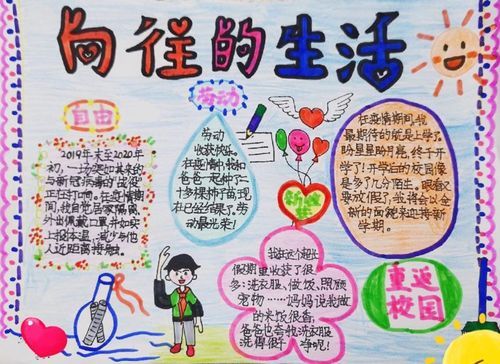 向往的生活
自由
2019年末至2020年
初，一场突如其来的
与新冠病毒的"战役"
正在打响。在疫情期
间，我自觉居家隔离，
外出佩戴口罩，并如实
上报体温，减少与他
人近距离接触。
劳动
劳动
收获快乐。
在疫情中我和
爸爸一起种了二
十多棵种子苗，现
在已经结果了。劳
动最光荣！
在疫情期间，我
最期待的就是上学了。
盼星星盼月亮，终于开
学了！开学后的校园像
是多了几分陌生。眼看又
要放假了，我将会以全
新的面貌来迎接新
学期。
我在这个超长
假期里收获了很
多：洗衣服、做饭、照顾
宠物……妈妈说我做
的米饭很香，
爸爸也夸我洗衣服
洗得很干净呢！
重返
校园